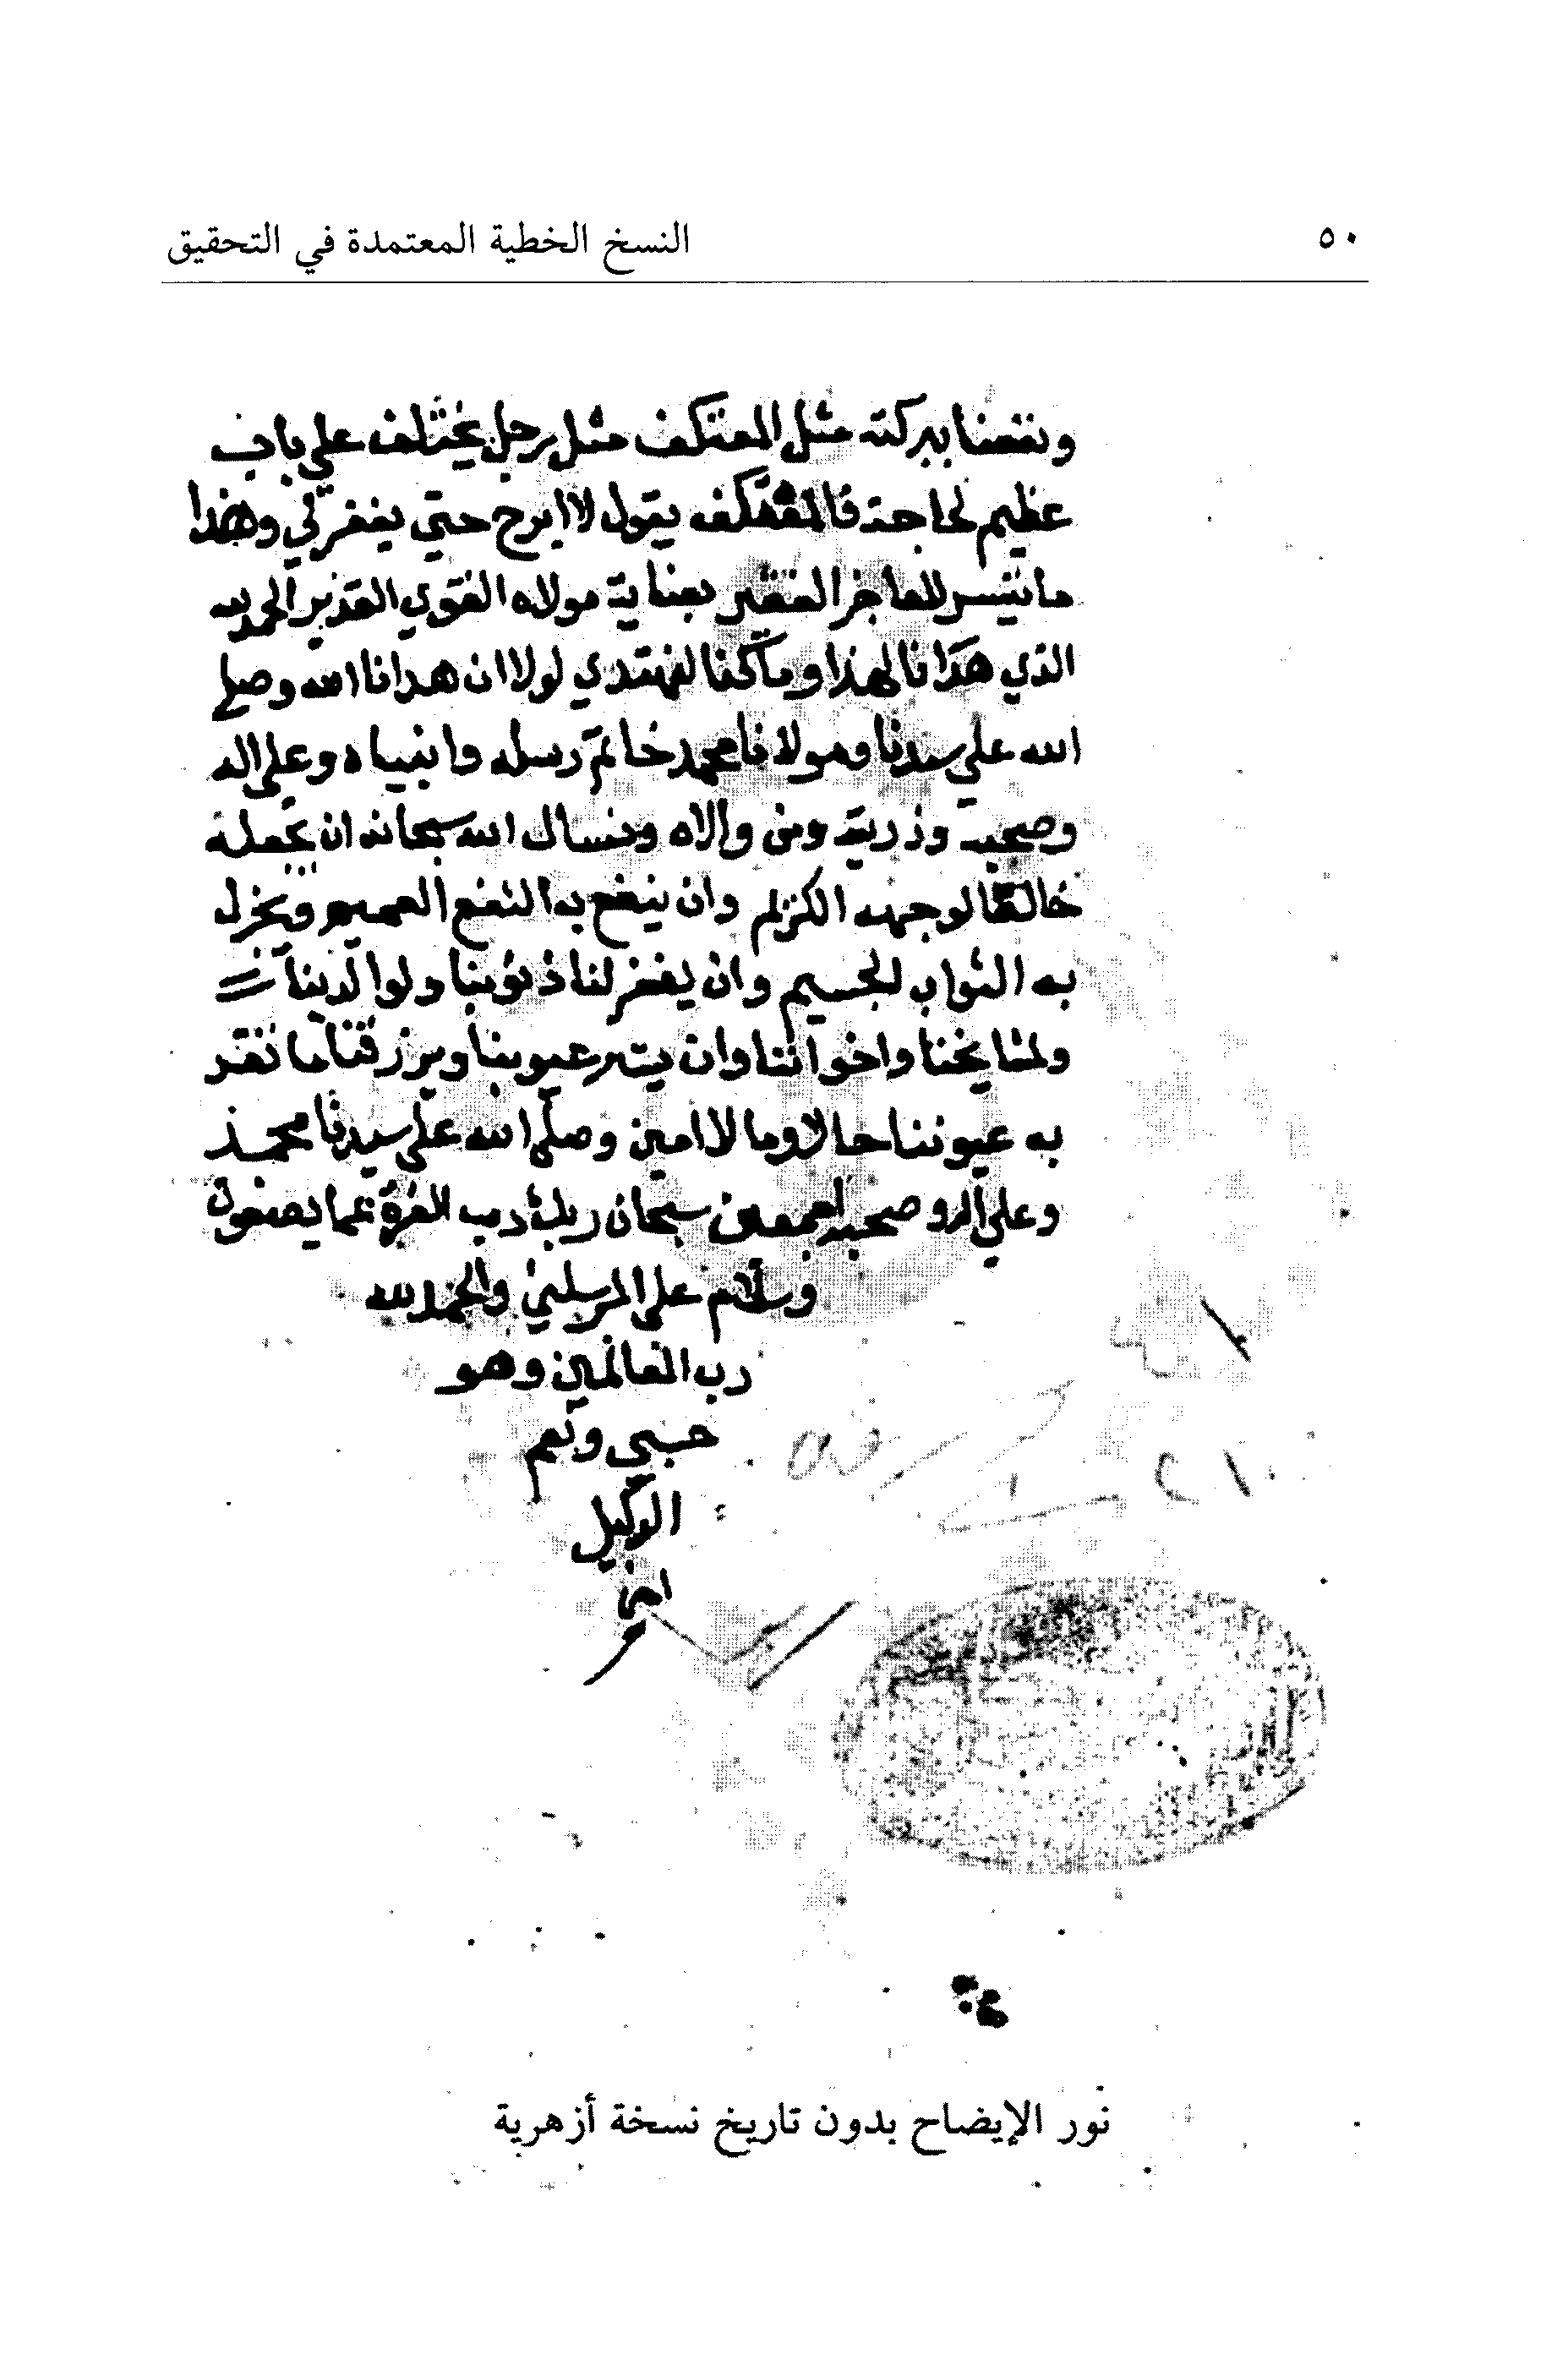 ٥٠ النسخ الخطية المعتمدة في التحقيق
ونفعنا ببركته مثل المعتكف مثل رجل يختلف علي باب
عظيم لحاجة فالمعتكف يقول لا ابرح حتي يغفر لي وهذا
ما تيسر للعاجز الفقير بعناية مولاه القوي القدير الحمد لله
الذي هدانا لهذا وما كنا لنهتدي لولا ان هدانا الله وصلي
الله علي سيدنا ومولانا محمد خاتم رسله وانبياه وعلي اله
وصحبه وذريته ومن والاه ونسال الله سبحانه ان يجعله
خالصا لوجهه الكريم وان ينفع به النفع العميم ويجزل
به الثواب الجسيم وان يغفر لنا ذنوبنا ولوالدينا
ولمشايخنا واخواننا وان يستر عيوبنا ويرزقنا ما تقر
به عيوننا حالا ومالا امين وصلي الله علي سيدنا محمد
وعلي اله وصحبه اجمعين سبحان ربك رب العزة عما يصفون
وسلام علي المرسلين والحمد لله
رب العالمين وهو
حسبي ونعم
الوكيل
امين
نور الإيضاح بدون تاريخ نسخة أزهرية